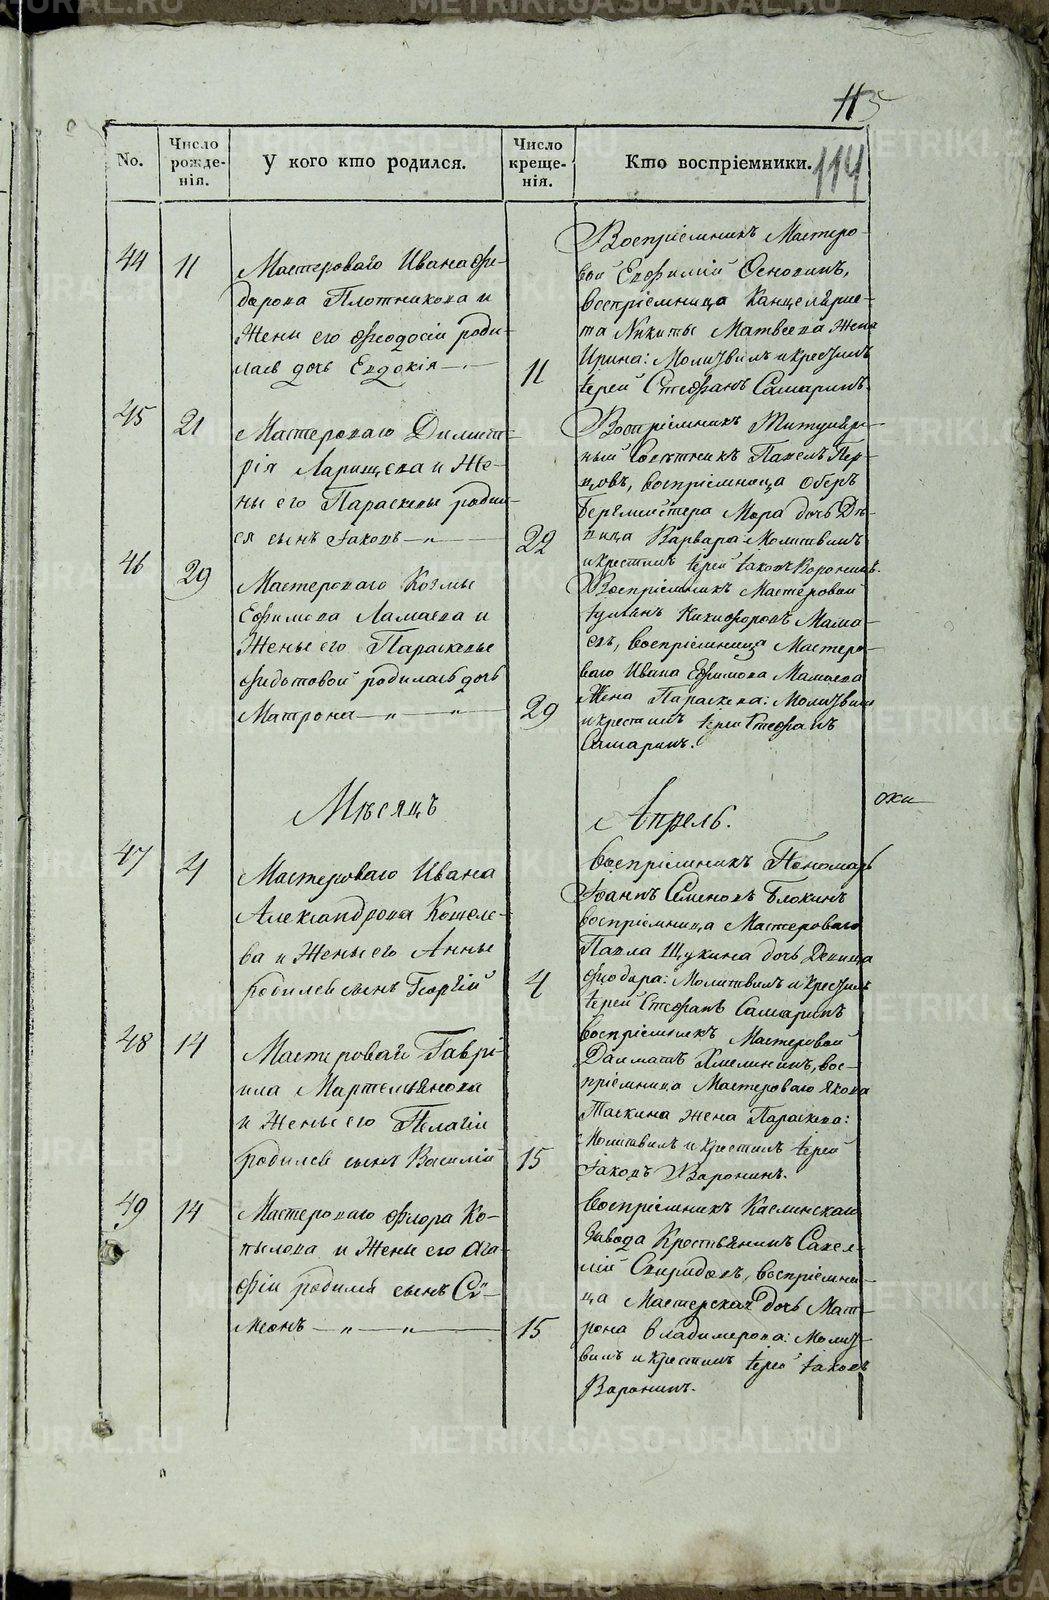 115
114
No.
Число рожденія.
У кого кто родился.
Число крещенія.
Кто воспріемники.
44
11
Мастероваго Ивана Фи-
дорова Плотникова и
Жены его Феодосіи роди-
лась дочь Евдокія
11
Воспріемникъ Мастеро-
вой Евфимій Основинъ,
воспріемница Канцеляри-
та Никиты Матвеева Жена
Ирина: Молитвилъ и крестилъ
Іерей Стефанъ Самаринъ.
45
21
Мастероваго Димит-
рія Ларищева и Же-
ны его Параскевы родил-
ся сынъ Іаковъ
22
Воспріемникъ Титуляр-
ный Советникъ Павелъ Пер-
цовъ, воспріемница Оберъ
Бергмейстера Мора дочь Дѣ-
вица Варвара: Молитвилъ
и крестилъ Іерей Іаковъ Воронинъ.
46
29
Мастероваго Козмы
Ефимова Мамаева и
Жены его Параскевы
Фидотовой родилась дочь
Матрона
29
Воспріемникъ Мастеровой
Іуліянъ Никифоровъ Мама-
евъ, воспріемница Мастеро-
ваго Ивана Ефимова Мамаева
Жена Параскева: Молитвилъ
и крестилъ Іерей Стефанъ
Самаринъ.
Мѣсяцъ
Апрель.
47
4
Мастероваго Ивана
Александрова Кошеле-
ва и Жены его Анны
родился сынъ Георгій
4
Воспріемникъ Пономарь
Іоаннъ Семеновъ Блохинъ
воспріемница Мастероваго
Павла Щукина дочь Девица
Фиодора: Молитвилъ и крестилъ
Іерей Стефанъ Самаринъ
48
14
Мастероваго Гаврі-
ила Мартемьянова
и Жены его Пелагіи
родился сынъ Василій
15
воспріемникъ Мастеровой
Далматъ Хмелининъ, вос-
пріемница Мастероваго Якова
Таскина жена Параскева:
Молитвилъ и крестилъ Іерей
Іаковъ Воронинъ.
49
14
Мастероваго Флора Ко-
пылова и Жены его Ага-
фіи родился сынъ Сѵ-
меонъ
15
Воспріемникъ Каслинскаго
Завода Крестьянинъ Савел-
лій Свиридовъ, воспріемни-
ца Мастерская дочь Мат-
рона Владимерова: Молит-
вилъ и крестилъ Іерей Іаковъ
Воронинъ.
METRIKI.GASO-URAL.RU